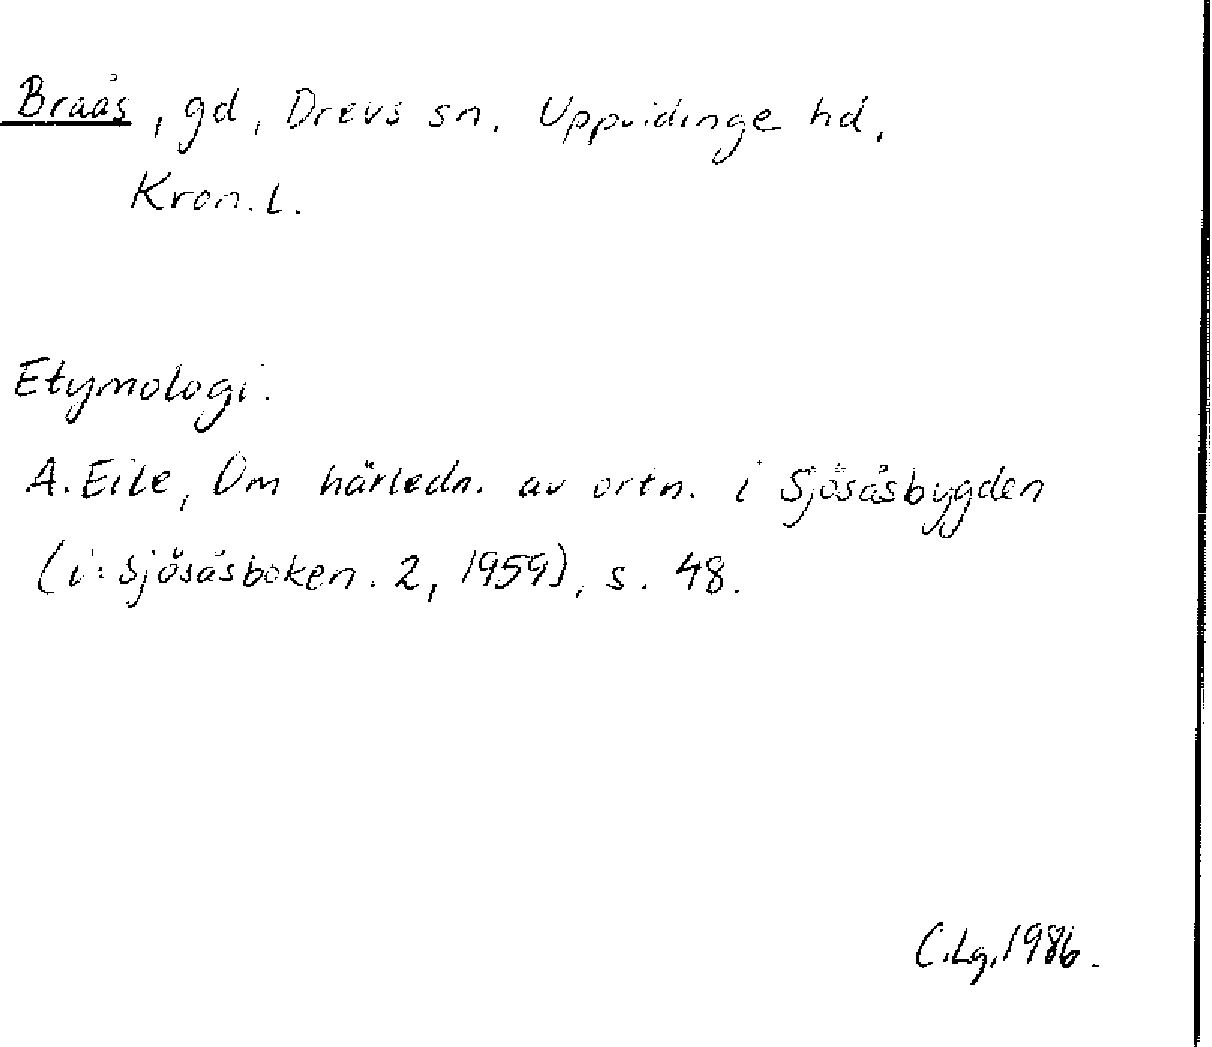 Braås, gd, Drevs sn. Uppvidinge hd,
Kron. L.
Etymologi.
A. Eile, Om härledn. av ortn. i Sjösåsbygden
(i: Sjösåsboken. 2, 1959), s. 48.
C.Lg. 1986.